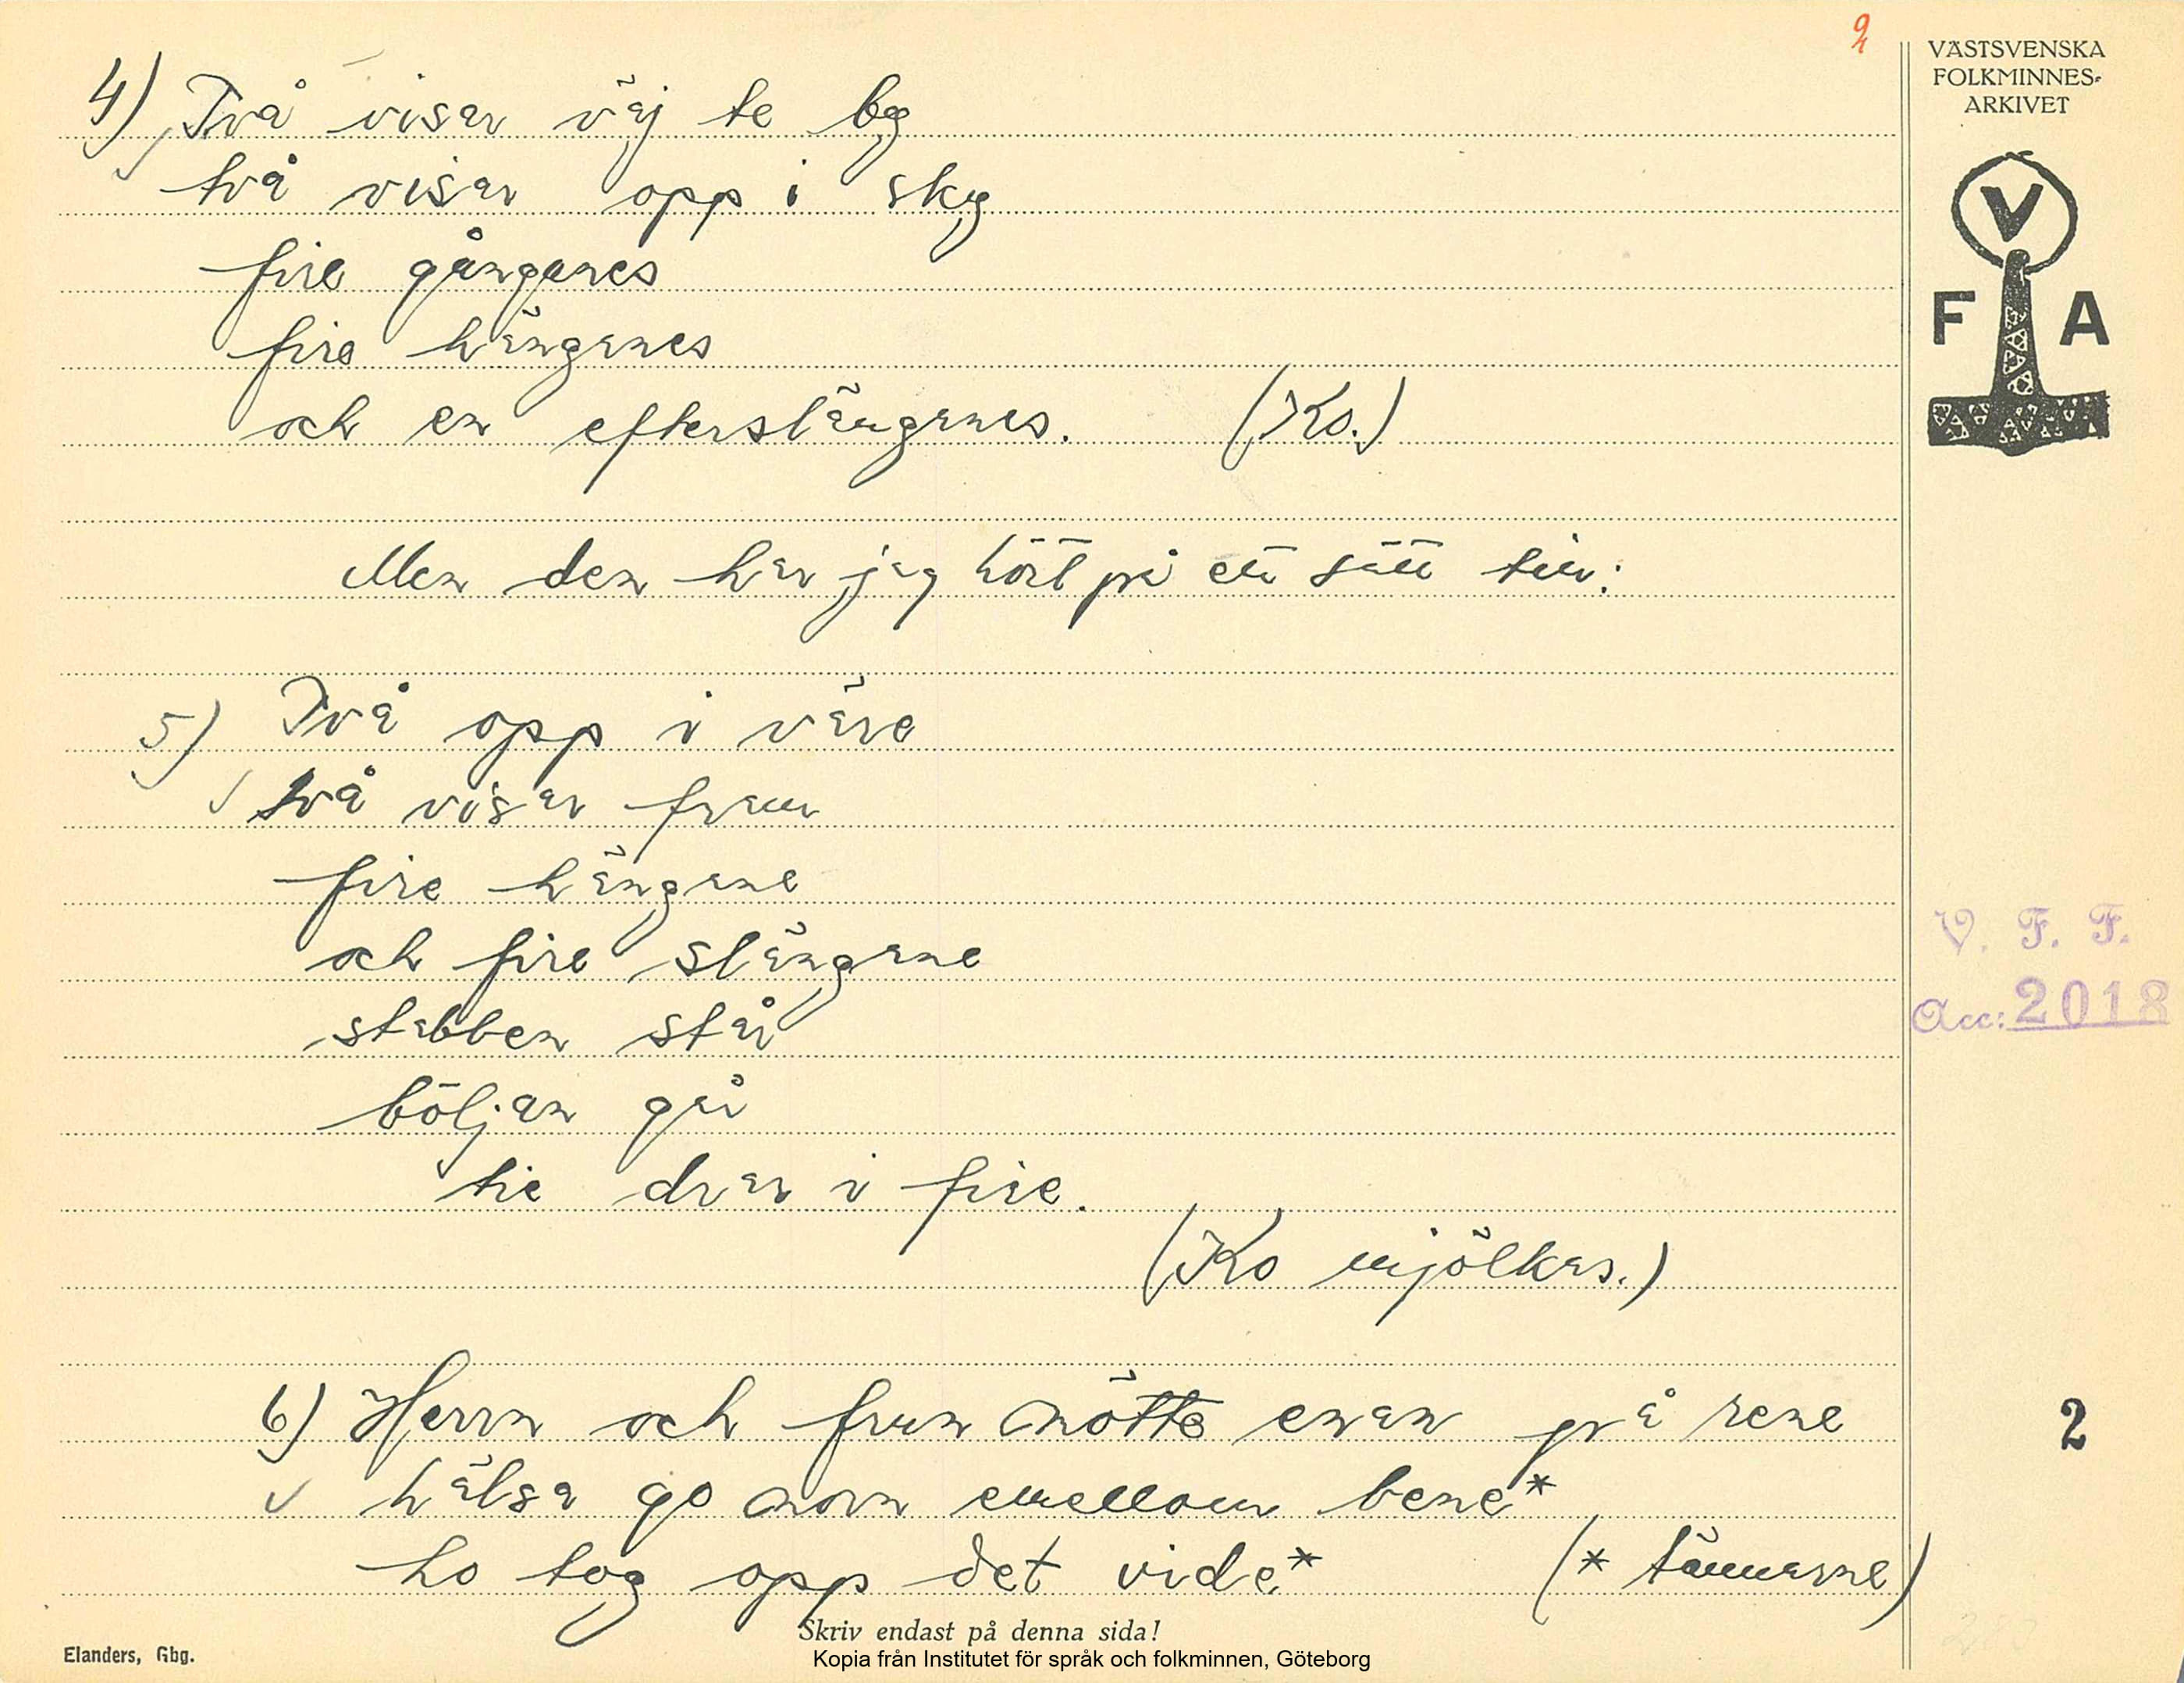 2
VÄSTSVENSKA
FOLKMINNES-
ARKIVET
V
F A
4) Två visar väj te by
två visar opp i sky
fire gånganes
fire hänganes
och en efterslänganes. (Ko.)
Men den har jag hört på ett sätt till:
5) Två opp i väre
två visar fram
fire hängane
och fire slängane
stabben står
böljan går
tie drar i fire.
(Ko mjölkas.)
6) Herrn och frun mötte enan på rene
hälsa go morn emellom bene*
ho tog opp det vide* (* tömmarne)
V. F. F.
Acc: 2018
2
Skriv endast på denna sida!
Elanders, Gbg.
Kopia från Institutet för språk och folkminnen, Göteborg